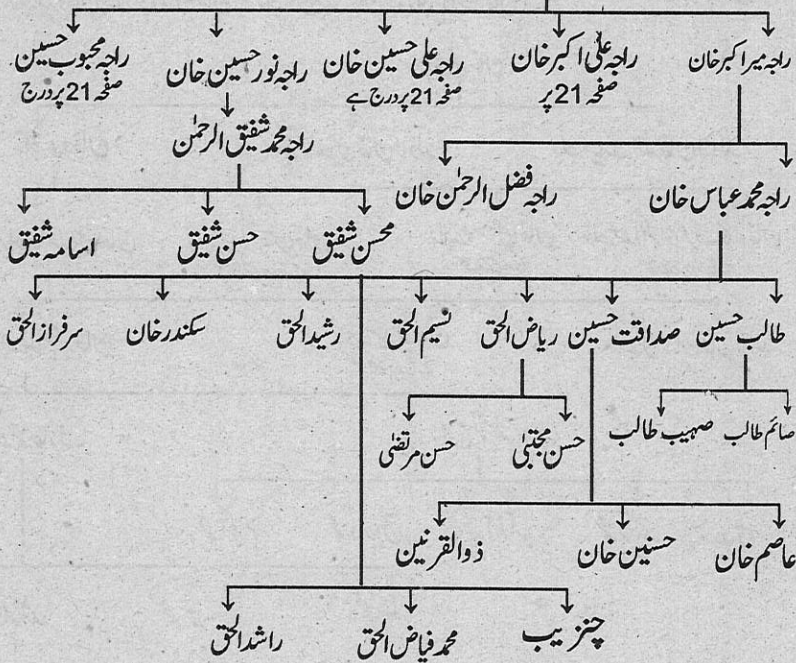 راجہ میر اکبر خان راجہ علی اکبر خان راجہ علی حسین خان راجہ نور حسین خان راجہ محبوب حسین
صفحہ 21 پر صفحہ 21 پر درج ہے صفحہ 21 پر درج
راجہ محمد شفیق الرحمٰن
راجہ محمد عباس خان راجہ فضل الرحمٰن خان
محسن شفیق حسن شفیق اسامہ شفیق
طالب حسین صداقت حسین ریاض الحق نسیم الحق رشید الحق سکندر خان سرفراز الحق
صائم طالب صہیب طالب
حسن مجتبیٰ حسن مرتضیٰ
عاصم خان حسنین خان ذوالقرنین
محمد فیاض الحق راشد الحق